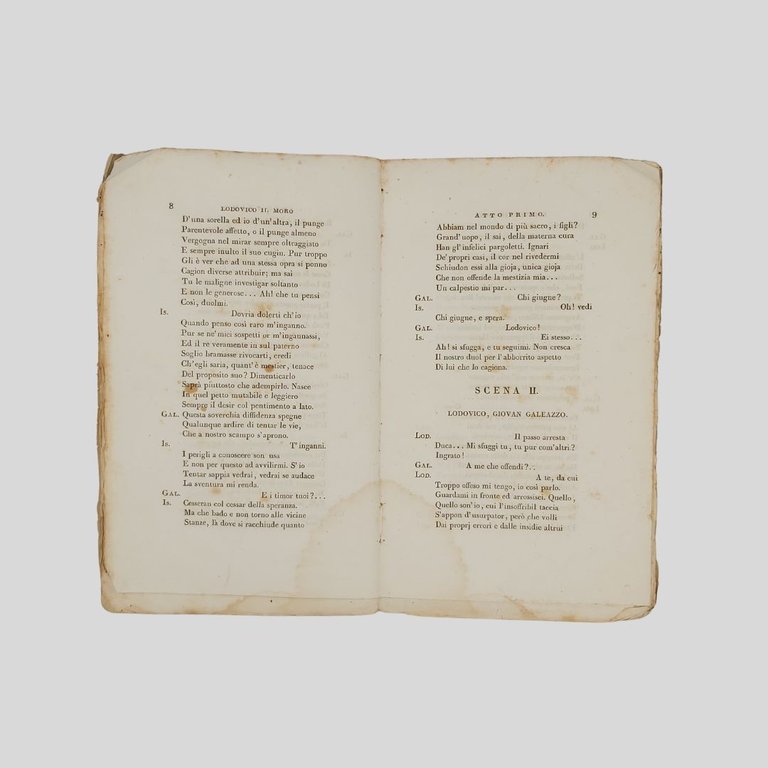 8
LODOVICO IL MORO
D'una sorella ed io d'un'altra, il punge
Parentevole affetto, o il punge almeno
Vergogna nel mirar sempre oltraggiato
E sempre inulto il suo cugin. Pur troppo
Gli è ver che ad una stessa opra si ponno
Cagion diverse attribuir; ma sai
Tu le maligne investigar soltanto
E non le generose... Ah! che tu pensi
Così, duolmi.
Is. Dovria dolerti ch'io
Quando penso così raro m'inganno.
Pur se ne'miei sospetti or m'ingannassi,
Ed il re veramente in sul paterno
Soglio bramasse rivocarti, credi
Ch'egli saria, quant'è mestier, tenace
Del proposito suo? Dimenticarlo
Saprà piuttosto che adempirlo. Nasce
In quel petto mutabile e leggiero
Sempre il desir col pentimento a lato.
GAL. Questa soverchia diffidenza spegne
Qualunque ardire di tentar le vie,
Che a nostro scampo s'aprono.
Is. T'inganni.
I perigli a conoscere son usa
E non per questo ad avvilirmi. S'io
Tentar sappia vedrai, vedrai se audace
La sventura mi renda.
GAL. E i timor tuoi?...
Is. Cesseran col cessar della speranza.
Ma che bado e non torno alle vicine
Stanze, là dove si racchiude quanto
ATTO PRIMO.
9
Abbiam nel mondo di più sacro, i figli?
Grand'uopo, il sai, della materna cura
Han gl'infelici pargoletti. Ignari
De' proprj casi, il cor nel rivedermi
Schiudon essi alla gioja, unica gioja
Che non offende la mestizia mia...
Un calpestio mi par...
GAL. Chi giugne?
Is. Oh! vedi
Chi giugne, e spera.
GAL. Lodovico!
Is. Ei stesso...
Ah! si sfugga, e tu seguimi. Non cresca
Il nostro duol per l'abborrito aspetto
Di lui che lo cagiona.
SCENA II.
LODOVICO, GIOVAN GALEAZZO.
LOD. Il passo arresta
Duca... Mi sfuggi tu, tu pur com'altri?
Ingrato!
GAL. A me che offendi?..
LOD. A te, da cui
Troppo offeso mi tengo, io così parlo.
Guardami in fronte ed arrossisci. Quello,
Quello son'io, cui l'insoffribil taccia
S'appon d'usurpator, però che volli
Dai proprj errori e dalle insidie altrui